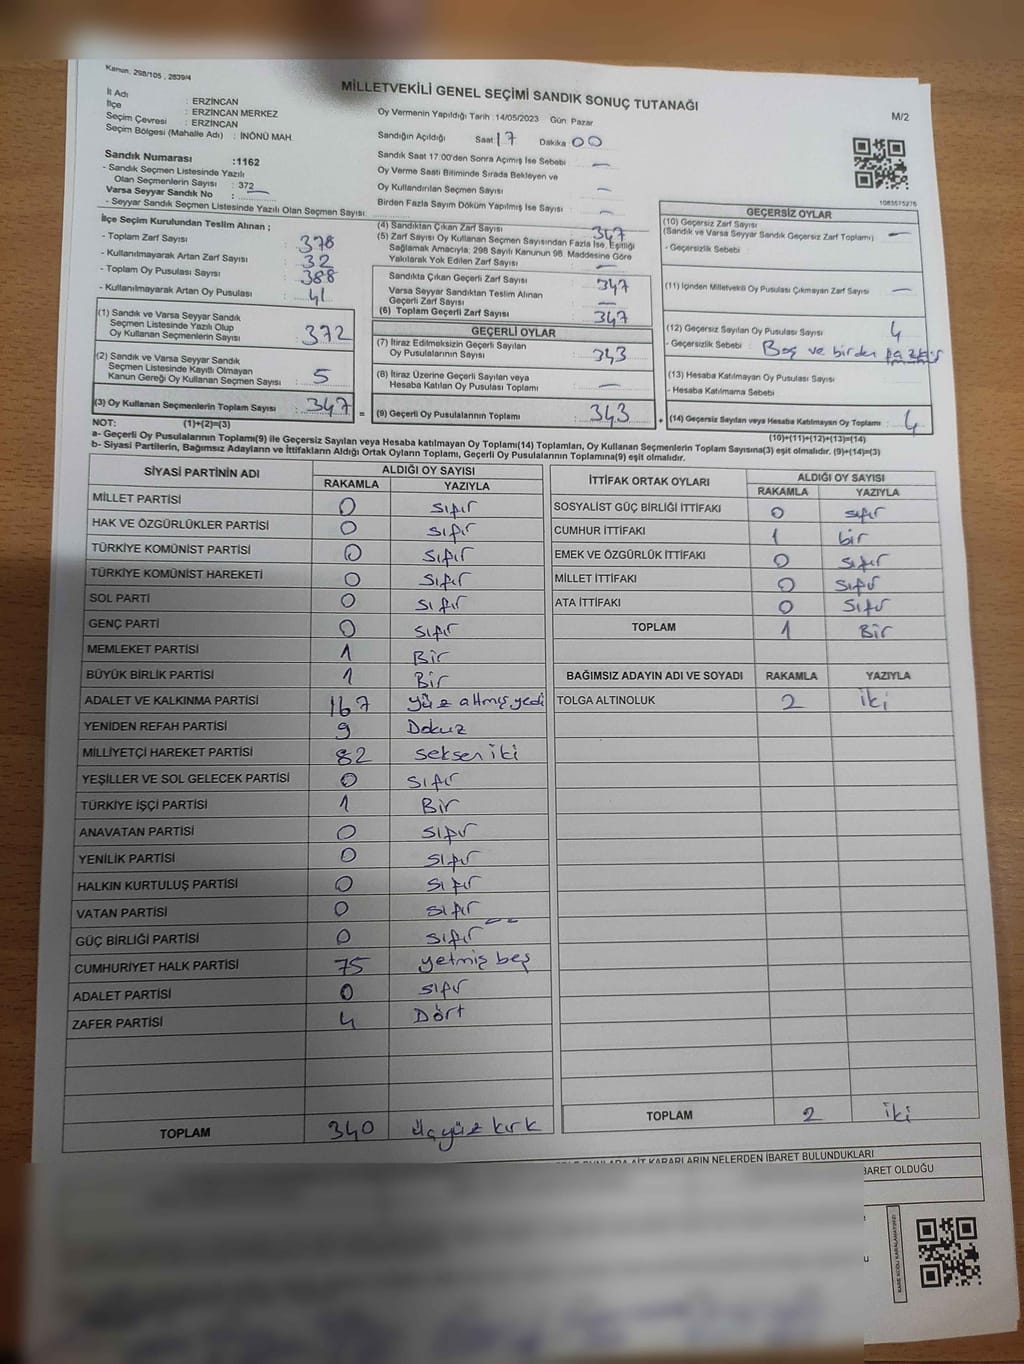 Kanun, 298/105 , 2839/4
MİLLETVEKİLİ GENEL SEÇİMİ SANDIK SONUÇ TUTANAĞI
M/2
İl Adı : ERZİNCAN
İlçe : ERZİNCAN MERKEZ
Seçim Çevresi : ERZİNCAN
Seçim Bölgesi (Mahalle Adı) : İNÖNÜ MAH
Oy Vermenin Yapıldığı Tarih :14/05/2023 Gün: Pazar
Sandığın Açıldığı Saat 17 Dakika 00
Sandık Saat 17:00'den Sonra Açımış İse Sebebi —
Oy Verme Saati Bitiminde Sırada Bekleyen ve
Oy Kullandırılan Seçmen Sayısı —
Birden Fazla Sayım Döküm Yapılmış İse Sayısı —
Sandık Numarası :1162
- Sandık Seçmen Listesinde Yazılı
Olan Seçmenlerin Sayısı : 372
Varsa Seyyar Sandık No :
- Seyyar Sandık Seçmen Listesinde Yazılı Olan Seçmen Sayısı:
1083575276
İlçe Seçim Kurulundan Teslim Alınan ;
- Toplam Zarf Sayısı : 378
- Kullanılmayarak Artan Zarf Sayısı : 32
- Toplam Oy Pusulası Sayısı : 388
- Kullanılmayarak Artan Oy Pusulası : 41
(1) Sandık ve Varsa Seyyar Sandık
Seçmen Listesinde Yazılı Olup
Oy Kullanan Seçmenlerin Sayısı : 372
(2) Sandık ve Varsa Seyyar Sandık
Seçmen Listesinde Kayıtlı Olmayan
Kanun Gereği Oy Kullanan Seçmen Sayısı : 5
(3) Oy Kullanan Seçmenlerin Toplam Sayısı : 347 =
(4) Sandıktan Çıkan Zarf Sayısı : 347
(5) Zarf Sayısı Oy Kullanan Seçmen Sayısından Fazla İse, Eşitliği
Sağlamak Amacıyla; 298 Sayılı Kanunun 98. Maddesine Göre
Yakılarak Yok Edilen Zarf Sayısı : —
Sandıkta Çıkan Geçerli Zarf Sayısı : 347
Varsa Seyyar Sandıktan Teslim Alınan
Geçerli Zarf Sayısı : —
(6) Toplam Geçerli Zarf Sayısı : 347
GEÇERLİ OYLAR
(7) İtiraz Edilmeksizin Geçerli Sayılan
Oy Pusulalarının Sayısı : 343
(8) İtiraz Üzerine Geçerli Sayılan veya
Hesaba Katılan Oy Pusulası Toplamı : —
(9) Geçerli Oy Pusulalarının Toplamı : 343 +
GEÇERSİZ OYLAR
(10) Geçersiz Zarf Sayısı
(Sandık ve Varsa Seyyar Sandık Geçersiz Zarf Toplamı) : —
- Geçersizlik Sebebi :
(11) İçinden Milletvekili Oy Pusulası Çıkmayan Zarf Sayısı : —
(12) Geçersiz Sayılan Oy Pusulası Sayısı : 4
- Geçersizlik Sebebi : Boş ve birden
(13) Hesaba Katılmayan Oy Pusulası Sayısı :
- Hesaba Katılmama Sebebi :
(14) Geçersiz Sayılan veya Hesaba Katılmayan Oy Toplamı : 4
NOT: (1)+(2)=(3)
(10)+(11)+(12)+(13)=(14)
a- Geçerli Oy Pusulalarının Toplamı(9) ile Geçersiz Sayılan veya Hesaba katılmayan Oy Toplamı(14) Toplamları, Oy Kullanan Seçmenlerin Toplam Sayısına(3) eşit olmalıdır. (9)+(14)=(3)
b- Siyasi Partilerin, Bağımsız Adayların ve İttifakların Aldığı Ortak Oyların Toplamı, Geçerli Oy Pusulalarının Toplamına(9) eşit olmalıdır.
SİYASİ PARTİNİN ADI
ALDIĞI OY SAYISI
RAKAMLA YAZIYLA
MİLLET PARTİSİ 0 sıfır
HAK VE ÖZGÜRLÜKLER PARTİSİ 0 sıfır
TÜRKİYE KOMÜNİST PARTİSİ 0 sıfır
TÜRKİYE KOMÜNİST HAREKETİ 0 sıfır
SOL PARTİ 0 sıfır
GENÇ PARTİ 0 sıfır
MEMLEKET PARTİSİ 1 Bir
BÜYÜK BİRLİK PARTİSİ 1 Bir
ADALET VE KALKINMA PARTİSİ 167 yüz altmış yedi
YENİDEN REFAH PARTİSİ 9 Dokuz
MİLLİYETÇİ HAREKET PARTİSİ 82 seksen iki
YEŞİLLER VE SOL GELECEK PARTİSİ 0 sıfır
TÜRKİYE İŞÇİ PARTİSİ 1 Bir
ANAVATAN PARTİSİ 0 sıfır
YENİLİK PARTİSİ 0 sıfır
HALKIN KURTULUŞ PARTİSİ 0 sıfır
VATAN PARTİSİ 0 sıfır
GÜÇ BİRLİĞİ PARTİSİ 0 sıfır
CUMHURİYET HALK PARTİSİ 75 yetmiş beş
ADALET PARTİSİ 0 sıfır
ZAFER PARTİSİ 4 Dört
TOPLAM 340 üçyüz kırk
İTTİFAK ORTAK OYLARI
ALDIĞI OY SAYISI
RAKAMLA YAZIYLA
SOSYALİST GÜÇ BİRLİĞİ İTTİFAKI 0 sıfır
CUMHUR İTTİFAKI 1 bir
EMEK VE ÖZGÜRLÜK İTTİFAKI 0 sıfır
MİLLET İTTİFAKI 0 sıfır
ATA İTTİFAKI 0 sıfır
TOPLAM 1 Bir
BAĞIMSIZ ADAYIN ADI VE SOYADI RAKAMLA YAZIYLA
TOLGA ALTINOLUK 2 iki
TOPLAM 2 iki
KARARLARIN NELERDEN İBARET BULUNDUKLARI
BARET OLDUĞU